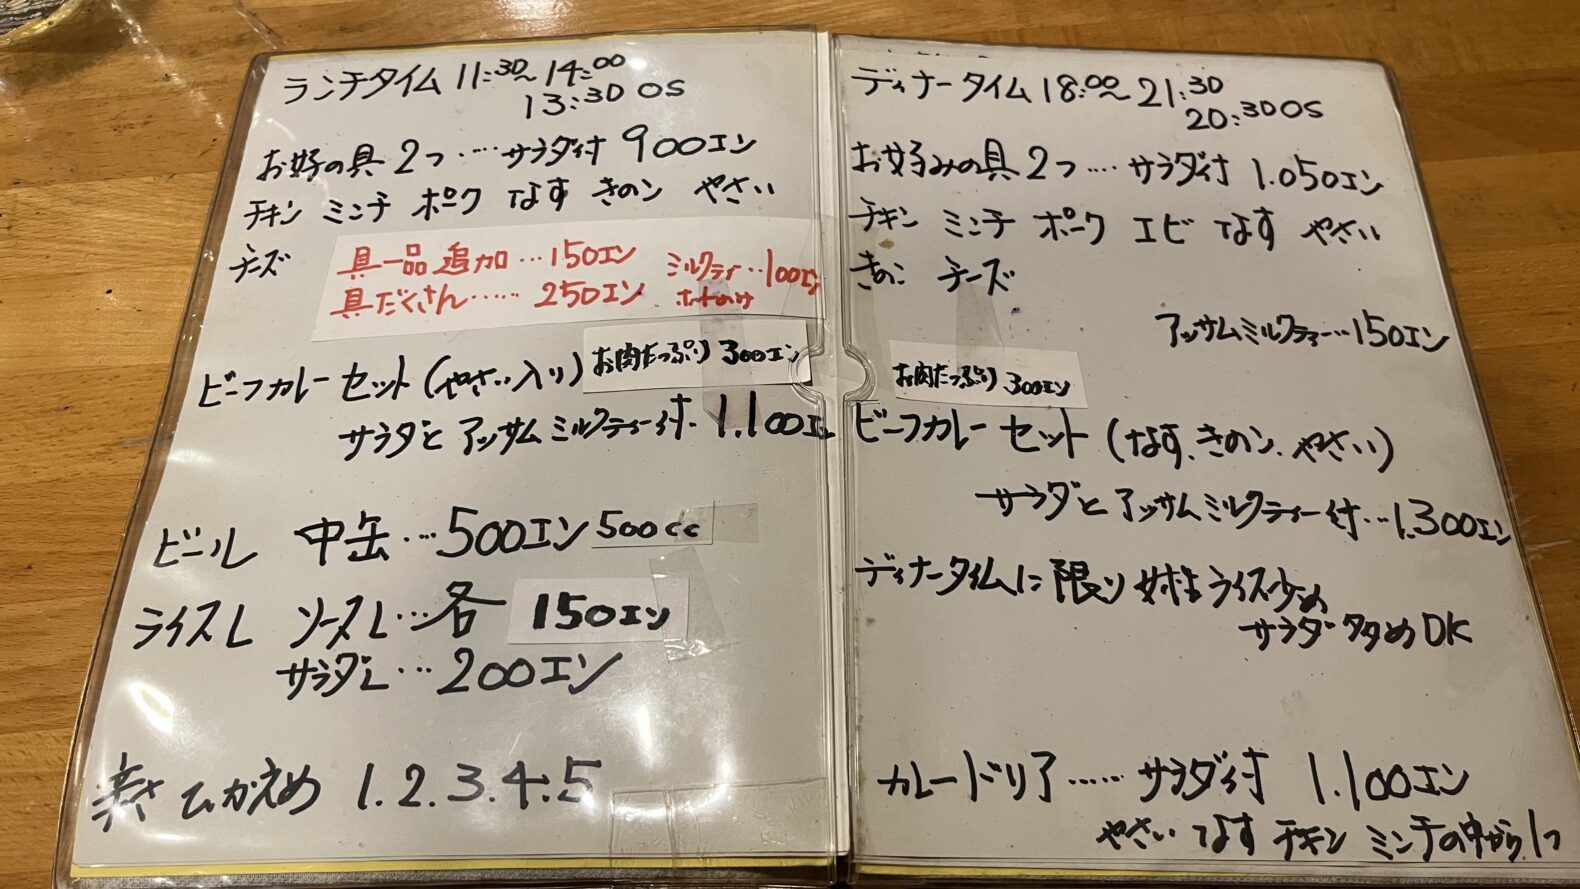 ランチタイム 11:30~14:00
13:30 OS
お好の具 2つ‥‥サラダ付 900エン
チキン ミンチ ポーク なす きのこ やさい
チーズ
具一品追加‥‥150エン
具だくさん‥‥‥250エン
ミルクティ‥100エン
ホットのみ
ビーフカレーセット(やさい入り)
お肉たっぷり 300エン
サラダとアッサムミルクティー付‥1.100エン
ビール 中缶‥‥500エン 500cc
ライスL ソースL‥‥各 150エン
サラダL‥‥200エン
辛さ ひかえめ 1.2.3.4.5
ディナータイム 18:00~21:30
20:30 OS
お好みの具 2つ‥‥サラダ付 1.050エン
チキン ミンチ ポーク エビ なす やさい
きのこ チーズ
アッサムミルクティー‥‥150エン
お肉たっぷり 300エン
ビーフカレーセット(なす、きのこ、やさい)
サラダとアッサムミルクティー付‥‥1.300エン
ディナータイムに限り 女性ライス少め
サラダ多めOK
カレードリア‥‥‥サラダ付 1.100エン
やさい なす チキン ミンチの中から1つ